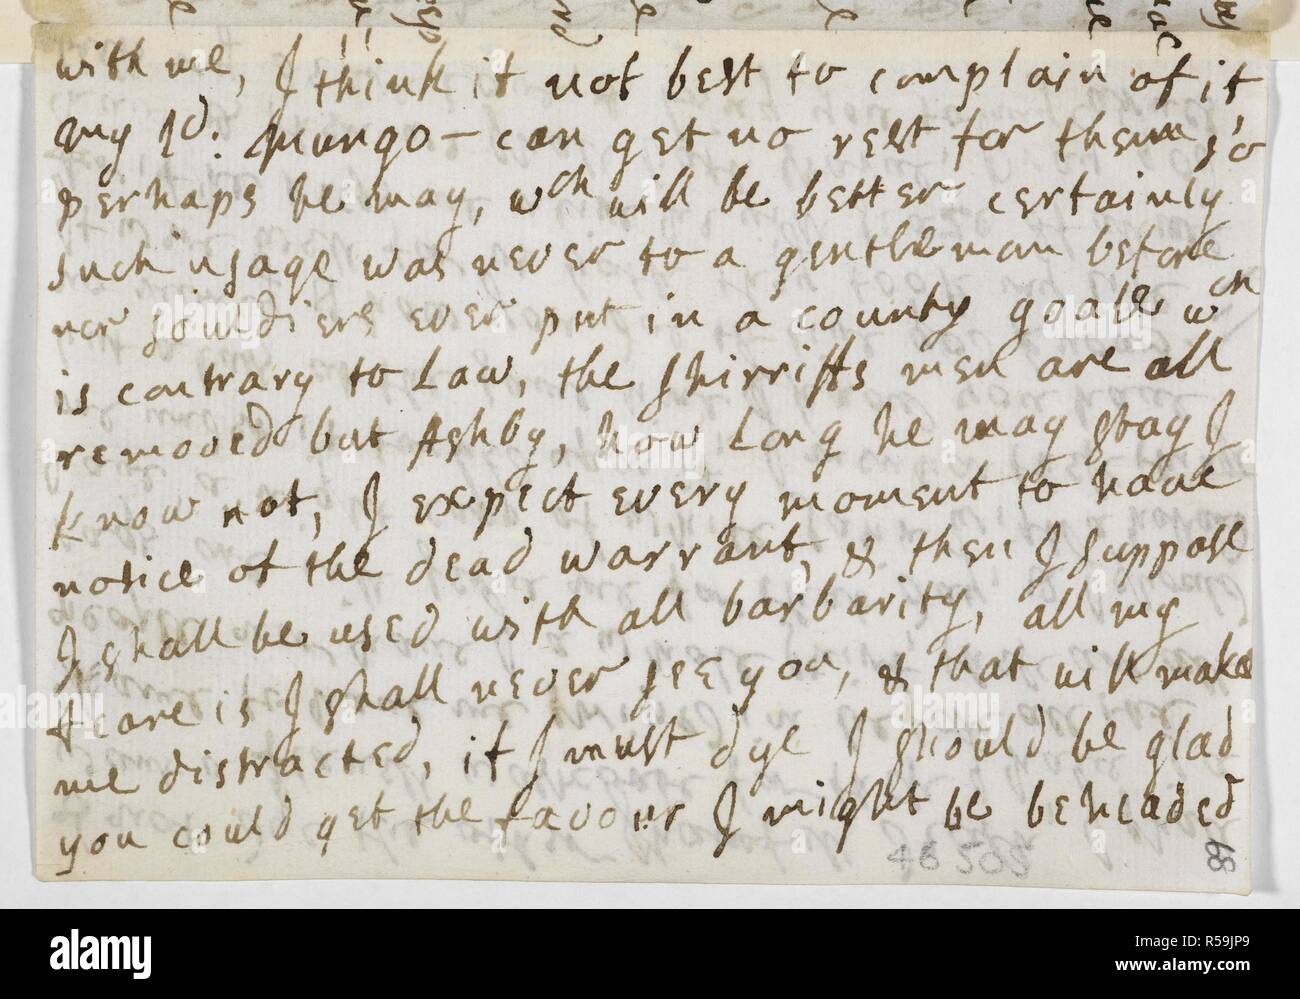 with me, I think it not best to complain of it
my Ld. Mungo – can get no rest for them, so
perhaps he may, wch will be better certainly
such usage was never to a gentleman before
nor souldiers ever put in a county goale wch
is contrary to Law, the shirriffs men are all
removed but Ashby, how Long he may stay I
know not, I expect every moment to have
notice of the dead warrant, & then I suppose
I shall be used with all barbarity, all my
feare is I shall never see you, & that will make
me distracted, if I must dye I should be glad
you could get the favour I might be beheaded
46202
89
alamy
Image ID: R59JP9
www.alamy.com